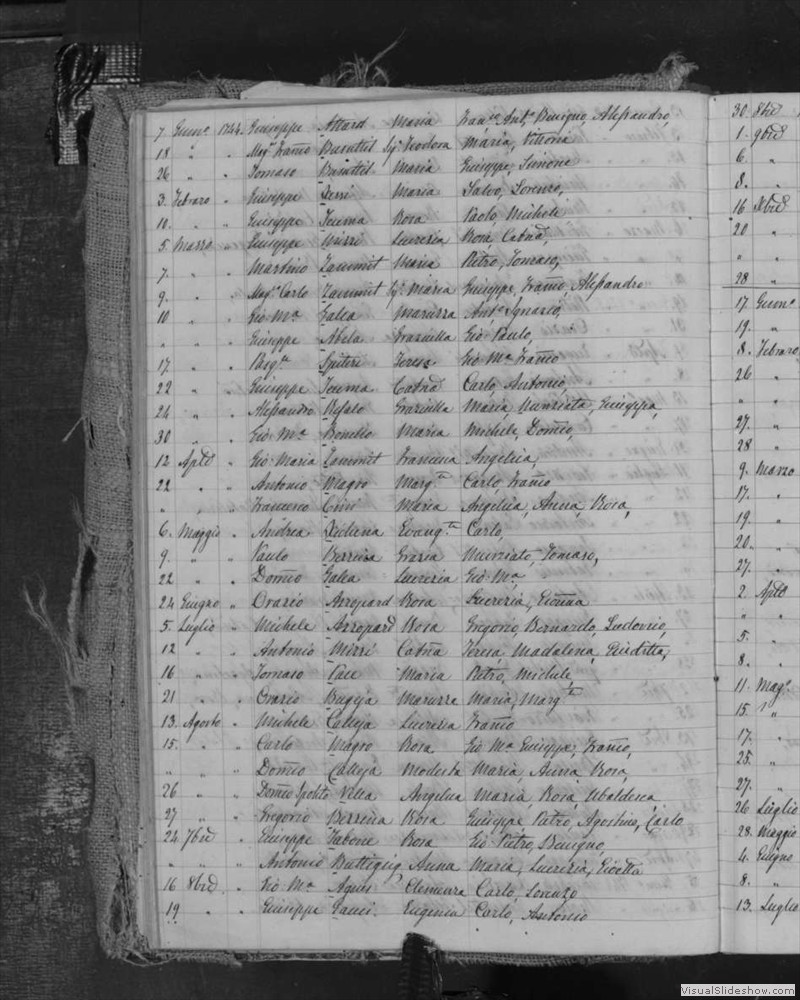 7 Genn.o 1744 Giuseppe Attard Maria Fran.co Ant.o Benigno, Alessandro,
18 " " Mag.o Franco Buruttel Sig.a Teodora Maria, Vittoria
26 " " Tomaso Buruttel Maria Giuseppe, Simone
3 Febraro " Giuseppe Maria Salvo, Lorenzo,
10 " " Giuseppe Teuma Rosa Paolo Michele
5 Marzo " Giuseppe Mizzi Lucrezia Rosa, Catna,
7 " " Martino Zammit Maria Pietro, Tomaso,
9 " " Mag.o Carlo Zammit Sig.a Maria Giuseppe, Franco, Alessandro
10 " " Gio Ma Galea Maruzza Ant.o Ignazio,
" " " Giuseppe Abela Graziulla Gio Paulo,
17 " " Pasq.le Spiteri Teresa Gio Ma Franco
22 " " Giuseppe Teuma Catna Carlo Antonio,
24 " " Alessandro Refalo Graziulla Maria, Nunziata, Giuseppa,
30 " " Gio Ma Bonello Maria Michele, Domco,
12 Aple " Gio Maria Zammit Francesca Angelica,
22 " " Antonio Magro Marg.ta Carlo, Franco
" " " Francesco Cini Maria Angelica, Anna, Rosa,
6 Maggio " Andrea Xicluna Evang.ta Carlo,
9 " " Paulo Berriva Grazia Nunziato, Tomaso,
22 " " Domco Galea Lucrezia Gio Ma
24 Giugno " Orazio Azzopard Rosa Lucrezia, Gionna
5 Luglio " Michele Azzopard Rosa Gregorio, Bernardo, Ludovico,
12 " " Antonio Mizzi Catna Teresa, Madalena, Giuditta,
16 " " Tomaso Pace Maria Pietro, Michele,
21 " " Orazio Bugeja Maruzza Maria, Marg.ta
13 Agosto " Michele Calleja Lucrezia Franco
15 " " Carlo Magro Rosa Gio Ma Giuseppe, Franco,
" " " Domco Calleja Modesta Maria, Anna, Rosa,
26 " " Domco Ipolito Vella Angelica Maria, Rosa, Ubaldesca,
27 " " Gregorio Berriva Rosa Giuseppe Pietro, Agostino, Carlo
24 7bre " Giuseppe Tabone Rosa Gio Pietro, Benigno,
" " " Antonio Buttigig Anna Maria, Lucrezia, Gioetta
16 8bre " Gio Ma Agius Clemenza Carlo, Lorenzo
19 " " Giuseppe Eugenia Carlo, Antonio
30 8bre
1 9bre
6 "
8 "
16 Xbre
20 "
" "
28 "
17 Genn.o
19 "
8 Febraro
26 "
" "
27 "
28 "
9 Marzo
17 "
19 "
20 "
27 "
2 Aple
" "
5 "
8 "
11 Mag.o
15 "
17 "
25 "
27 "
26 Luglio
28 Maggio
4 Giugno
8 "
13 Luglio
VisualSlideshow.com